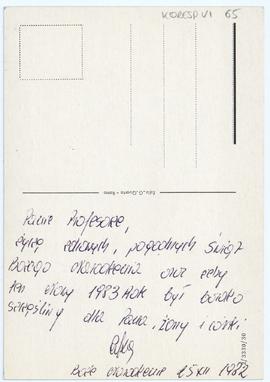 KORESP VI 65
Edit. G. Quarta - Roma
Panie Profesorze,
życzę zdrowych, pogodnych Świąt
Bożego Narodzenia oraz żeby
ten Nowy 1983 Rok był bardzo
szczęśliwy dla Pana, żony i córki
Boże Narodzenie 15 XII 1982